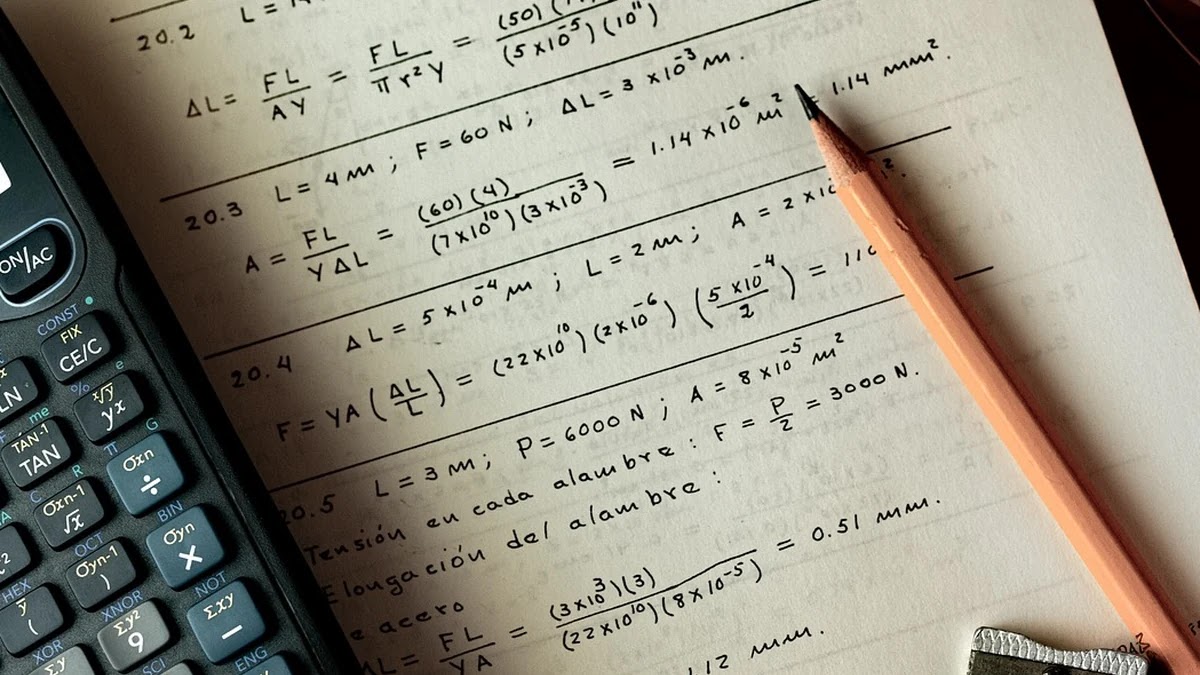 20.2 L = 
ΔL = FL/AY = FL/πr²Y = (50)( /(5×10⁻⁵)(10¹¹)
20.3 L = 4 m ; F = 60 N ; ΔL = 3 ×10⁻³ m.
A = FL/YΔL = (60)(4)/(7×10¹⁰)(3×10⁻³) = 1.14 ×10⁻⁶ m² = 1.14 mm².
20.4 ΔL = 5 ×10⁻⁴ m ; L = 2 m ; A = 2 ×10
F = YA (ΔL/L) = (22×10¹⁰)(2×10⁻⁶) (5×10⁻⁴/2) = 110
20.5 L = 3 m ; P = 6000 N ; A = 8 ×10⁻⁵ m²
Tensión en cada alambre : F = P/2 = 3000 N.
Elongación del alambre :
e acero
ΔL = FL/YA = (3×10³)(3)/(22×10¹⁰)(8×10⁻⁵) = 0.51 mm.
12 mm.
ON/AC
CONST
FIX
CE/C
LN
% e
x√y
yx
me
TAN-1
TAN
π G
σxn
÷
C R
σxn-1
√x
BIN
σyn
×
OCT
σyn-1
)
HEX
ȳ
(
XNOR
Σy²
9
NOT
Σxy
−
XOR
Σy
SCI
ENG